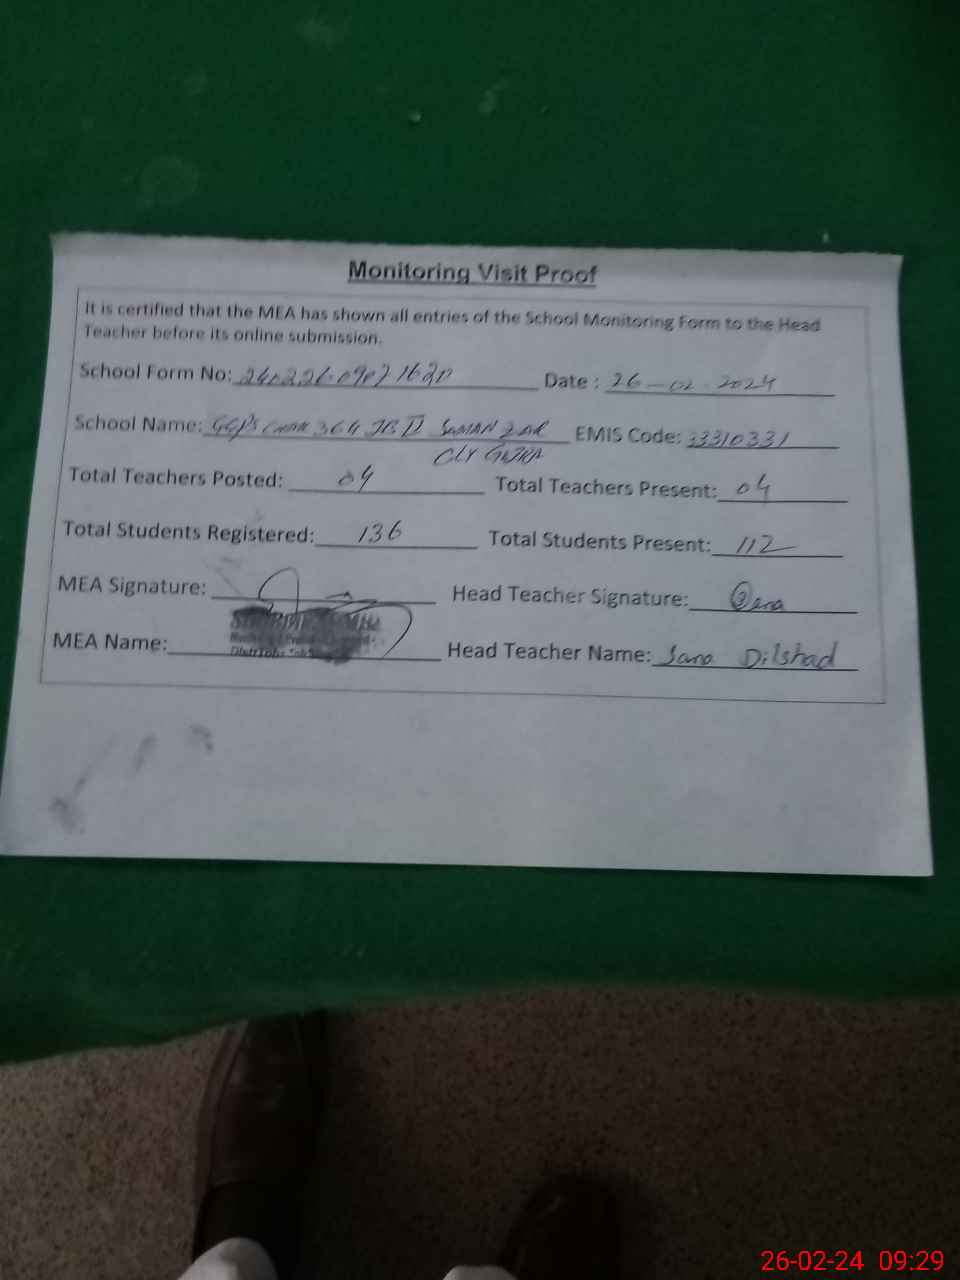 Monitoring Visit Proof
It is certified that the MEA has shown all entries of the School Monitoring Form to the Head
Teacher before its online submission.
School Form No: Date : 26-02-2024
School Name: GGPS CHAK 364 JB II SAMAN ZAR
CLY GOJRA
EMIS Code: 33310331
Total Teachers Posted: 04 Total Teachers Present: 04
Total Students Registered: 136 Total Students Present: 112
MEA Signature: Head Teacher Signature: Sana
MEA Name: Head Teacher Name: Sana Dilshad
26-02-24 09:29